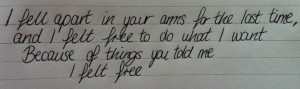 I fell apart in your arms for the last time,
and I felt free to do what I want
Because of things you told me
I felt free